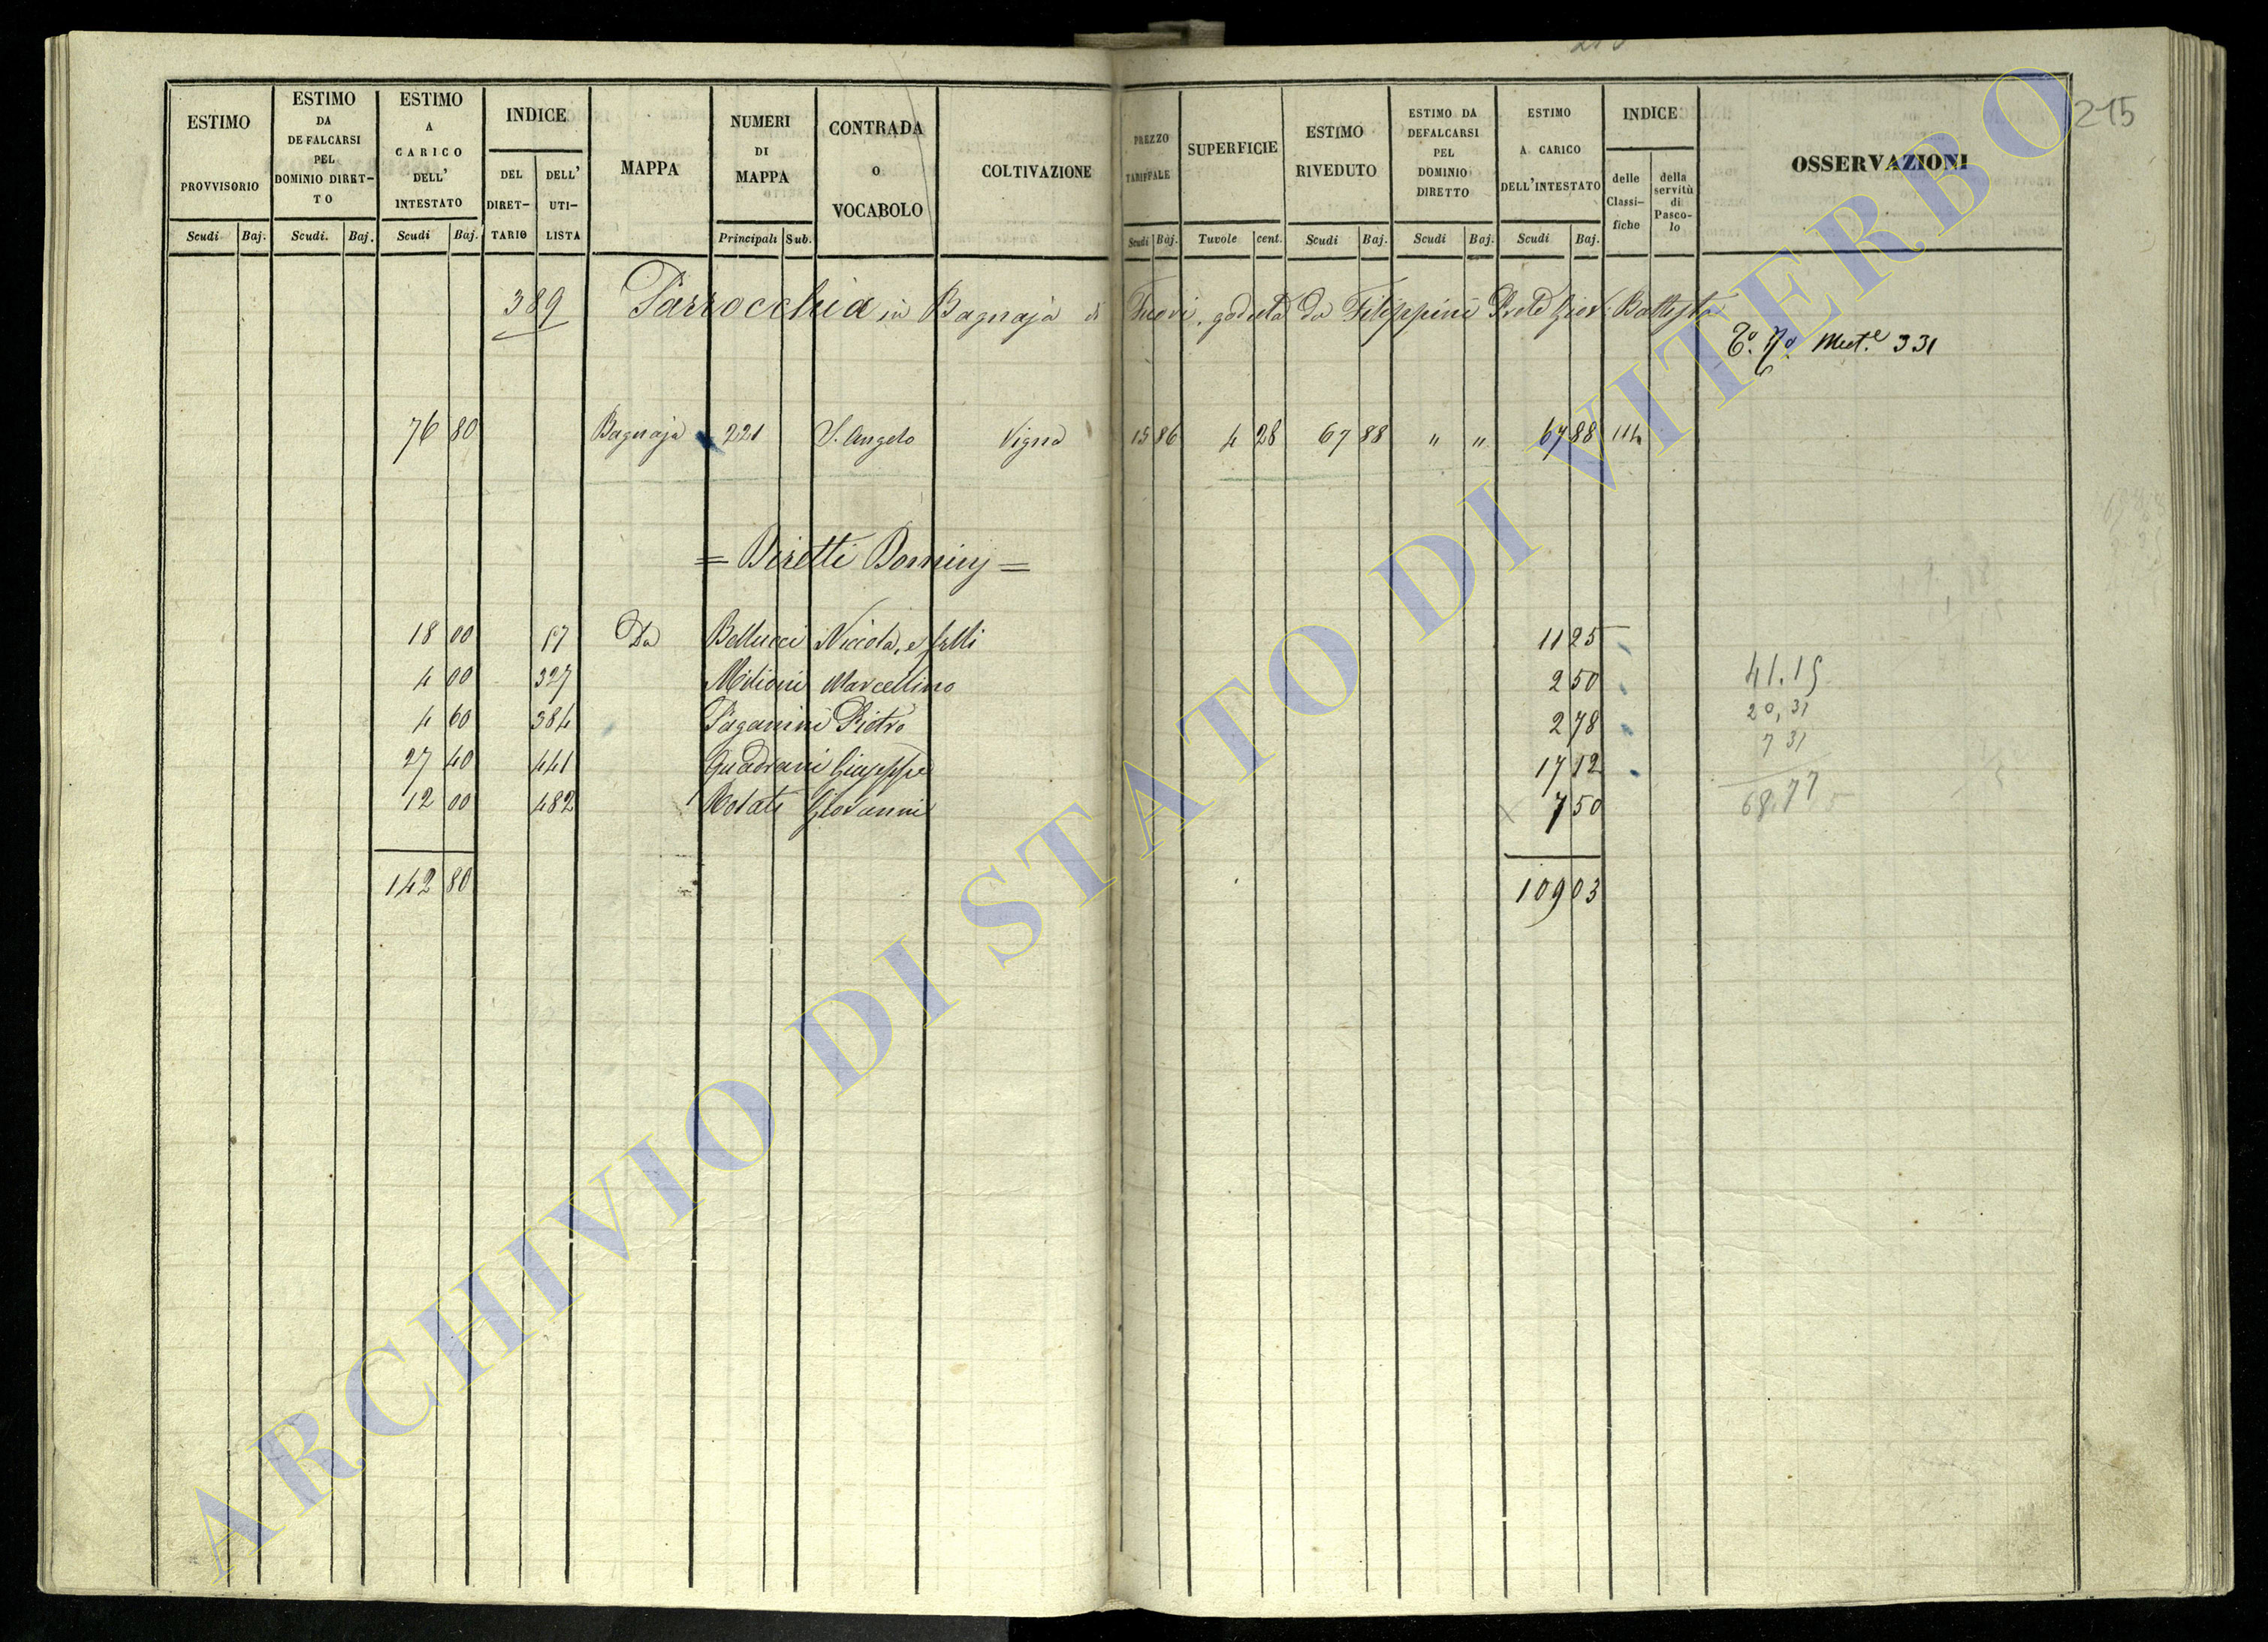 215
ESTIMO PROVVISORIO
ESTIMO DA DEFALCARSI PEL DOMINIO DIRET-TO
ESTIMO A CARICO DELL' INTESTATO
INDICE
DEL DIRET-TARIO
DELL' UTI-LISTA
MAPPA
NUMERI DI MAPPA
CONTRADA O VOCABOLO
COLTIVAZIONE
PREZZO TARIFFALE
SUPERFICIE
ESTIMO RIVEDUTO
ESTIMO DA DEFALCARSI PEL DOMINIO DIRETTO
ESTIMO A CARICO DELL'INTESTATO
INDICE
delle Classi-fiche
della servitù di Pasco-lo
OSSERVAZIONI
Scudi Baj. Scudi. Baj. Scudi Baj. Principali Sub. Scudi Baj. Tavole cent. Scudi Baj. Scudi Baj. Scudi Baj.
389 Parrocchia in Bagnaja di Fuori, goduta da Filippini Giov. Battista
331
76 80 Bagnaja 221 S. Angelo Vigna 15 86 4 28 67 88 " " 67 88 114
= Diretti Dominj =
18 00 57 Da Bellucci Niccola, e frlli 11 25
4 00 327 Milioni Marcellino 2 50 41.15
4 60 384 Paganini Pietro 2 78 20,31
27 40 441 Quadrani Giuseppe 17 12 7 31
12 00 482 Rosati Giovanni 7 50 68,77
142 80 109 03
ARCHIVIO DI STATO DI VITERBO